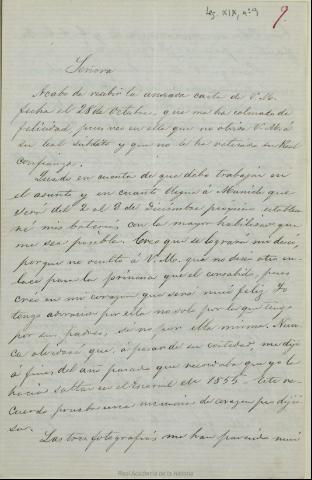 Leg. XIX, nº 9
9
Señora
Acabo de recibir la ansiada carta de V. M.
fecha el 28 de Octubre, que me ha colmado de
felicidad pues veo en ella que no olvida V. M. á
su leal subdito y que no le ha retirado su Real
confianza.
Quedo en cuenta de que debo trabajar en
el asunto y en cuanto llegue á Munich que
será del 2 al 8 de Diciembre procsimo estable
ré mis baterias con la mayor habilidad que
me sea posible. Creo que se lograra mi deseo,
porque no oculto á V. M. que no deseo otro en
lace para la princesa que el consabido, pues
creo en mi corazon que será muy feliz. Yo
tengo adoracion por ella no solo por lo que tengo
por sus padres, si no por ella misma. Nun
ca olvidaré que, á pesar de su cortedad me dijo
á fines del año pasado que recordaba que yo la
hacia saltar en el de 1855. Este re
cuerdo prueba una memoria de corazon prodijio
sa.
Las tres fotografias me han parecido muy
Real Academia de la Historia